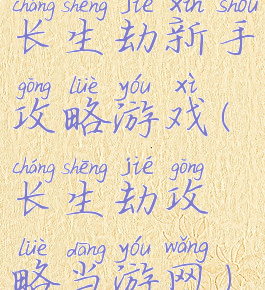 cháng shēng jié xīn shǒu
长生劫新手
gōng lüè yóu xì
攻略游戏(
cháng shēng jié gōng
长生劫攻
lüè dāng yóu wǎng
略当游网)